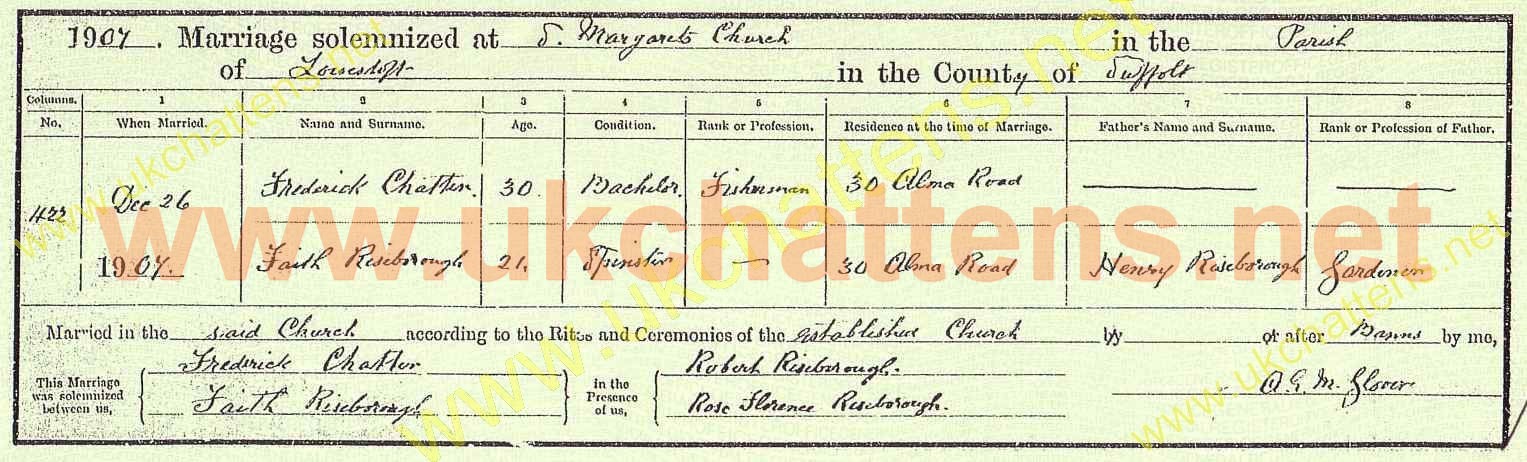 1907. Marriage solemnized at S. Margarets Church in the Parish
of Lowestoft in the County of Suffolk
Columns. 1 2 3 4 5 6 7 8
No. When Married. Name and Surname. Age. Condition. Rank or Profession. Residence at the time of Marriage. Father's Name and Surname. Rank or Profession of Father.
Dec 26 Frederick Chatten. 30. Bachelor. Fisherman 30 Alma Road
www.ukchattens.net
1907. Faith Riseborough 21. Spinster — 30 Alma Road Henry Riseborough Gardener
Married in the said Church according to the Rites and Ceremonies of the Established Church by or after Banns by me,
This Marriage was solemnized between us,
Frederick Chatten
Faith Riseborough
in the Presence of us,
Robert Riseborough.
Rose Florence Riseborough.
Glover
www.ukchattens.net
www.ukchattens.net
www.ukchattens.net
www.ukchattens.net